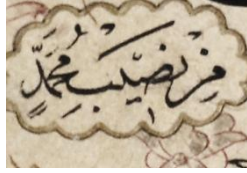 مِنْ نصيب مُحَمَّدٍ